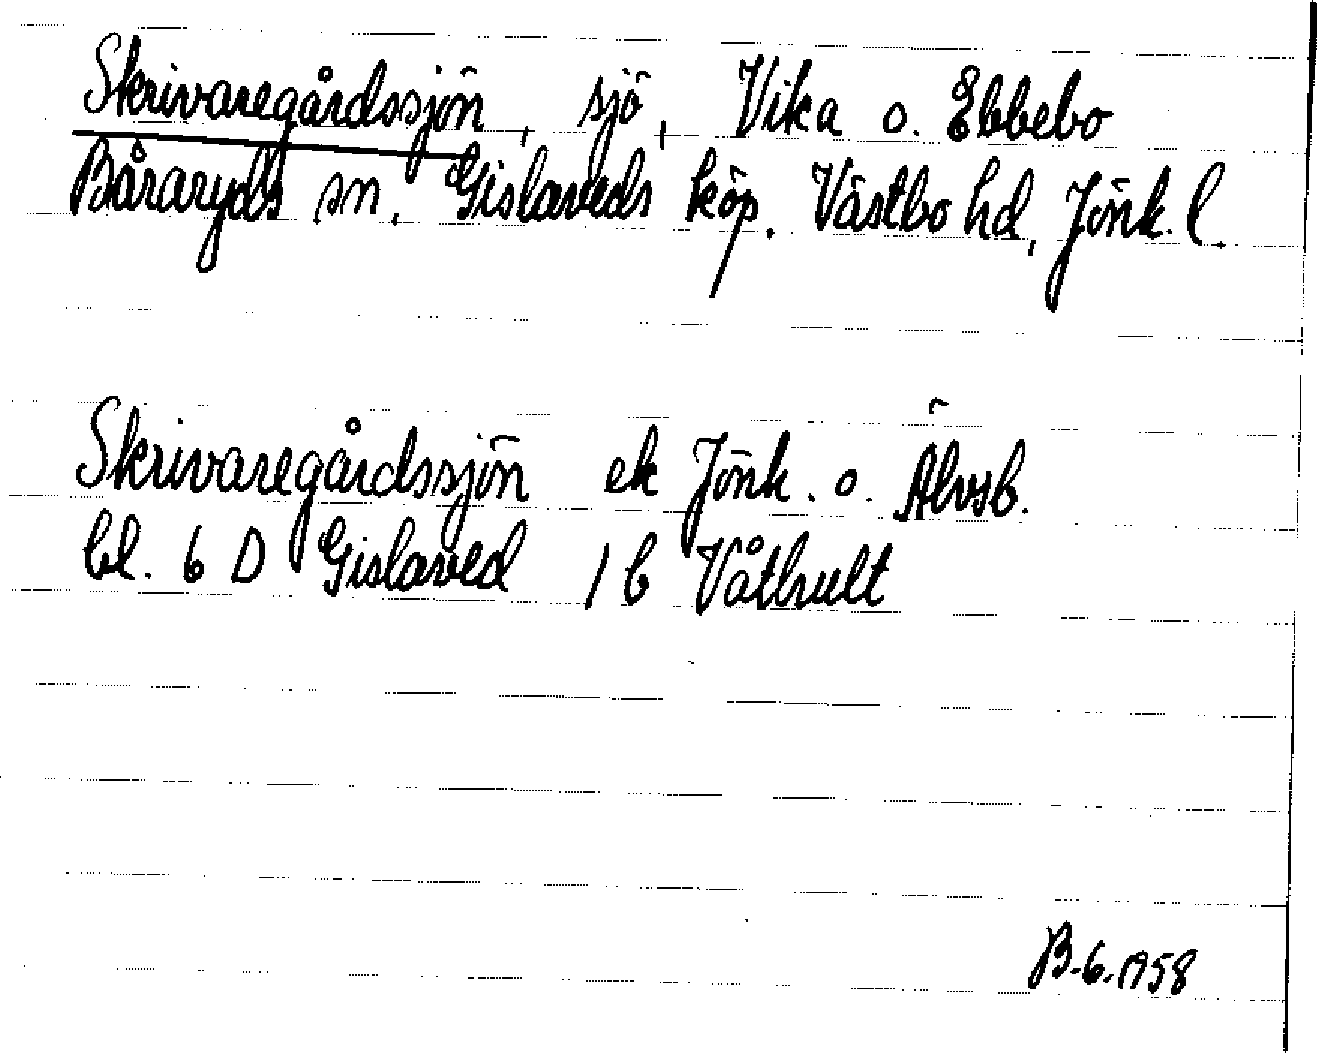 Skrivaregårdssjön, sjö, Vika o. Ebbebo
Båraryds sn. Gislaveds köp. Västbo hd, Jönk. l.
Skrivaregårdssjön ek Jönk. o. Älvsb.
bl. 6 D Gislaved 1 b Våthult
B.6.1958